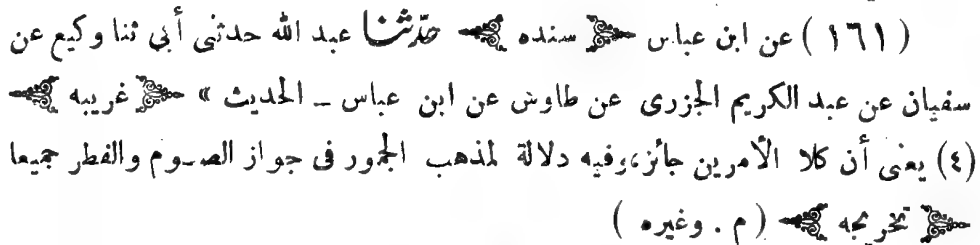 (١٦١) عن ابن عباس ﴿ سنده ﴾ حدّثنا عبد الله حدثنى أبى ثنا وكيع عن
سفيان عن عبد الكريم الجزرى عن طاوس عن ابن عباس ــ الحديث » ﴿ غريبه ﴾
(٤) يعنى أن كلا الأمرين جائز، وفيه دلالة لمذهب الجمهور فى جواز الصوم والفطر جميعا
﴿ تخريجه ﴾ (م . وغيره )